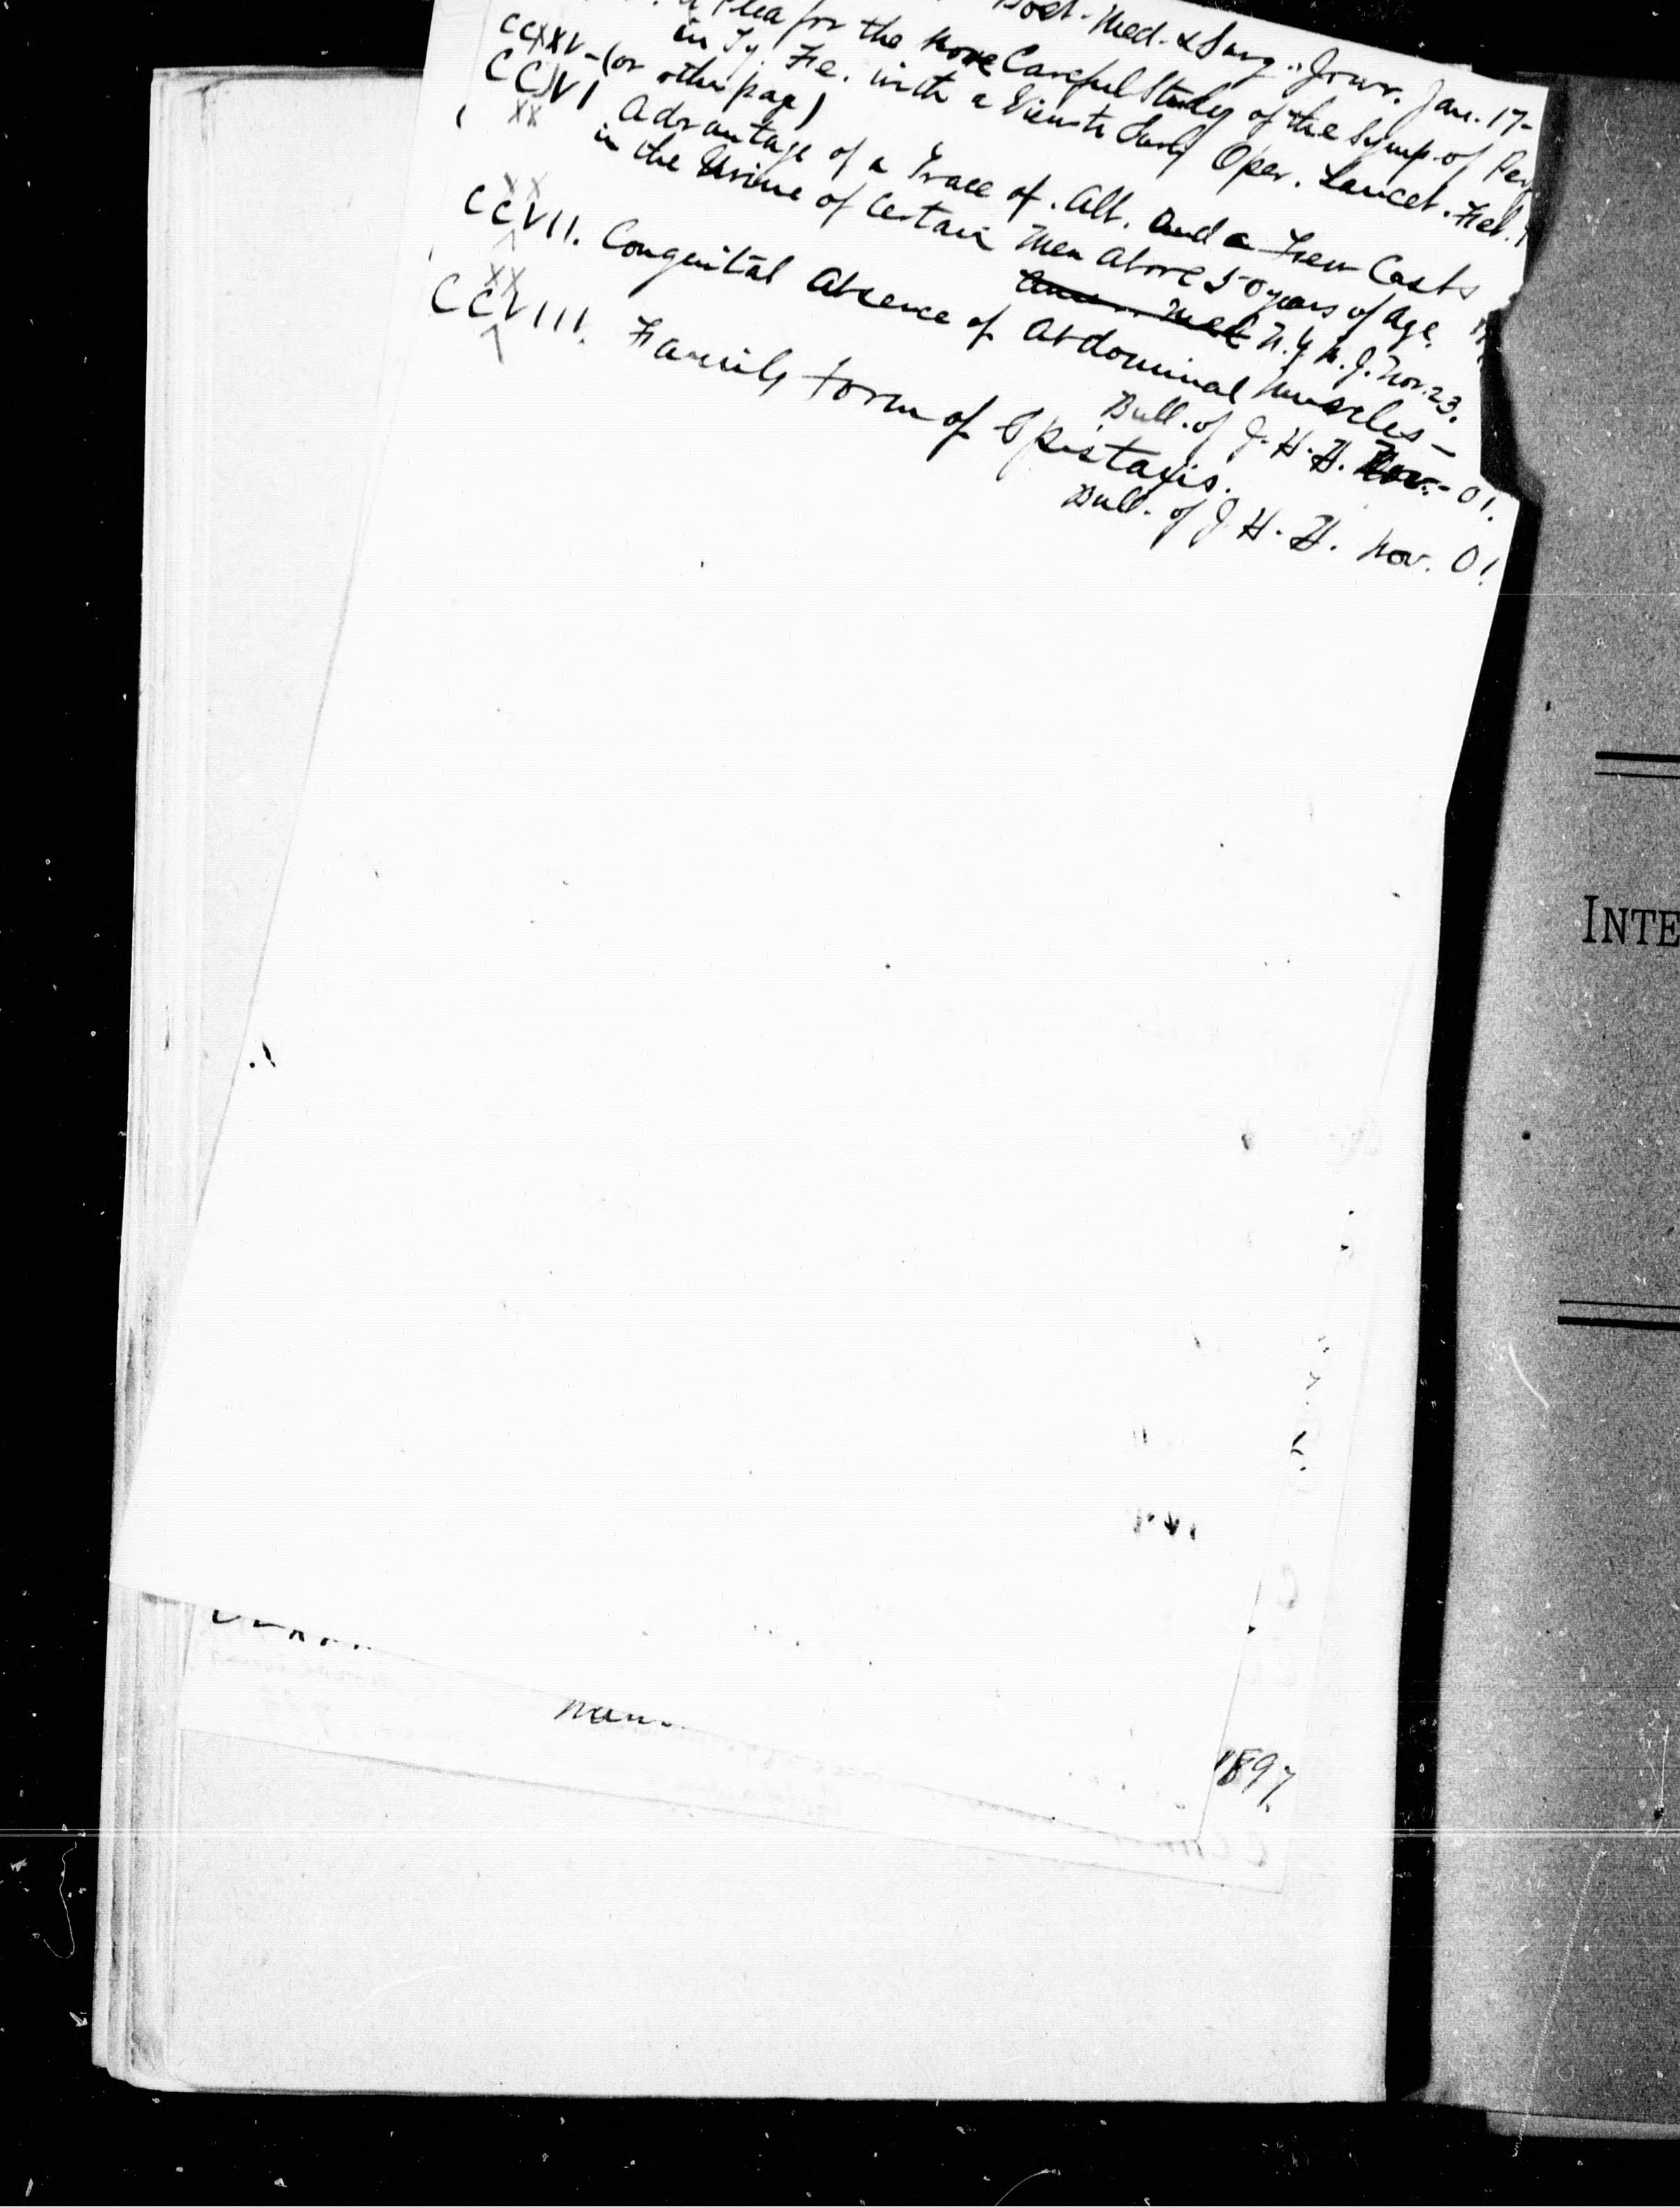 Bost. Med. & Surg. Jour. Jan. 17-
a Plea for the more Careful Study of the Symp. of Perf
in Ty. Fie. with a View to Early Oper. Lancet. Feb.
CCXXV-(on other page)
CCXXVI Advantage of a Trace of. Alb. and a Few Casts
in the Urine of Certain Men above 50 years of Age.
N.Y. M. J. Nov. 23.
CCXXVII. Congenital Absence of Abdominal Muscles-
Bull. of J. H. H. Nov.- 01.
CCXXVIII. Family form of Epistaxis.
Bull. of J. H. H. Nov. 01.
1897.
INTE